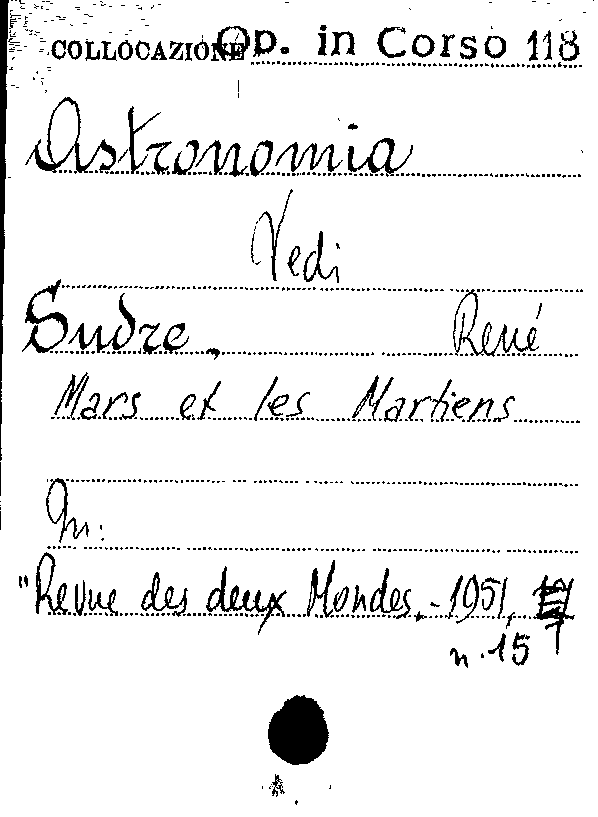 COLLOCAZIONE Op. in Corso 118
Astronomia
Vedi
Sudre, René
Mars et les Martiens
In:
"Revue des deux Mondes.- 1951,
n. 15
A